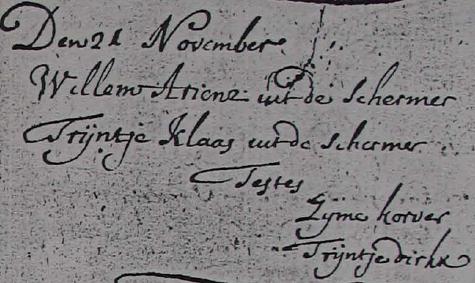 Den 21 November
Willem Arienz uit de Schermer
Trijntje Klaas uit de Schermer
Testes
Zijme korver
Trijntje dirkx